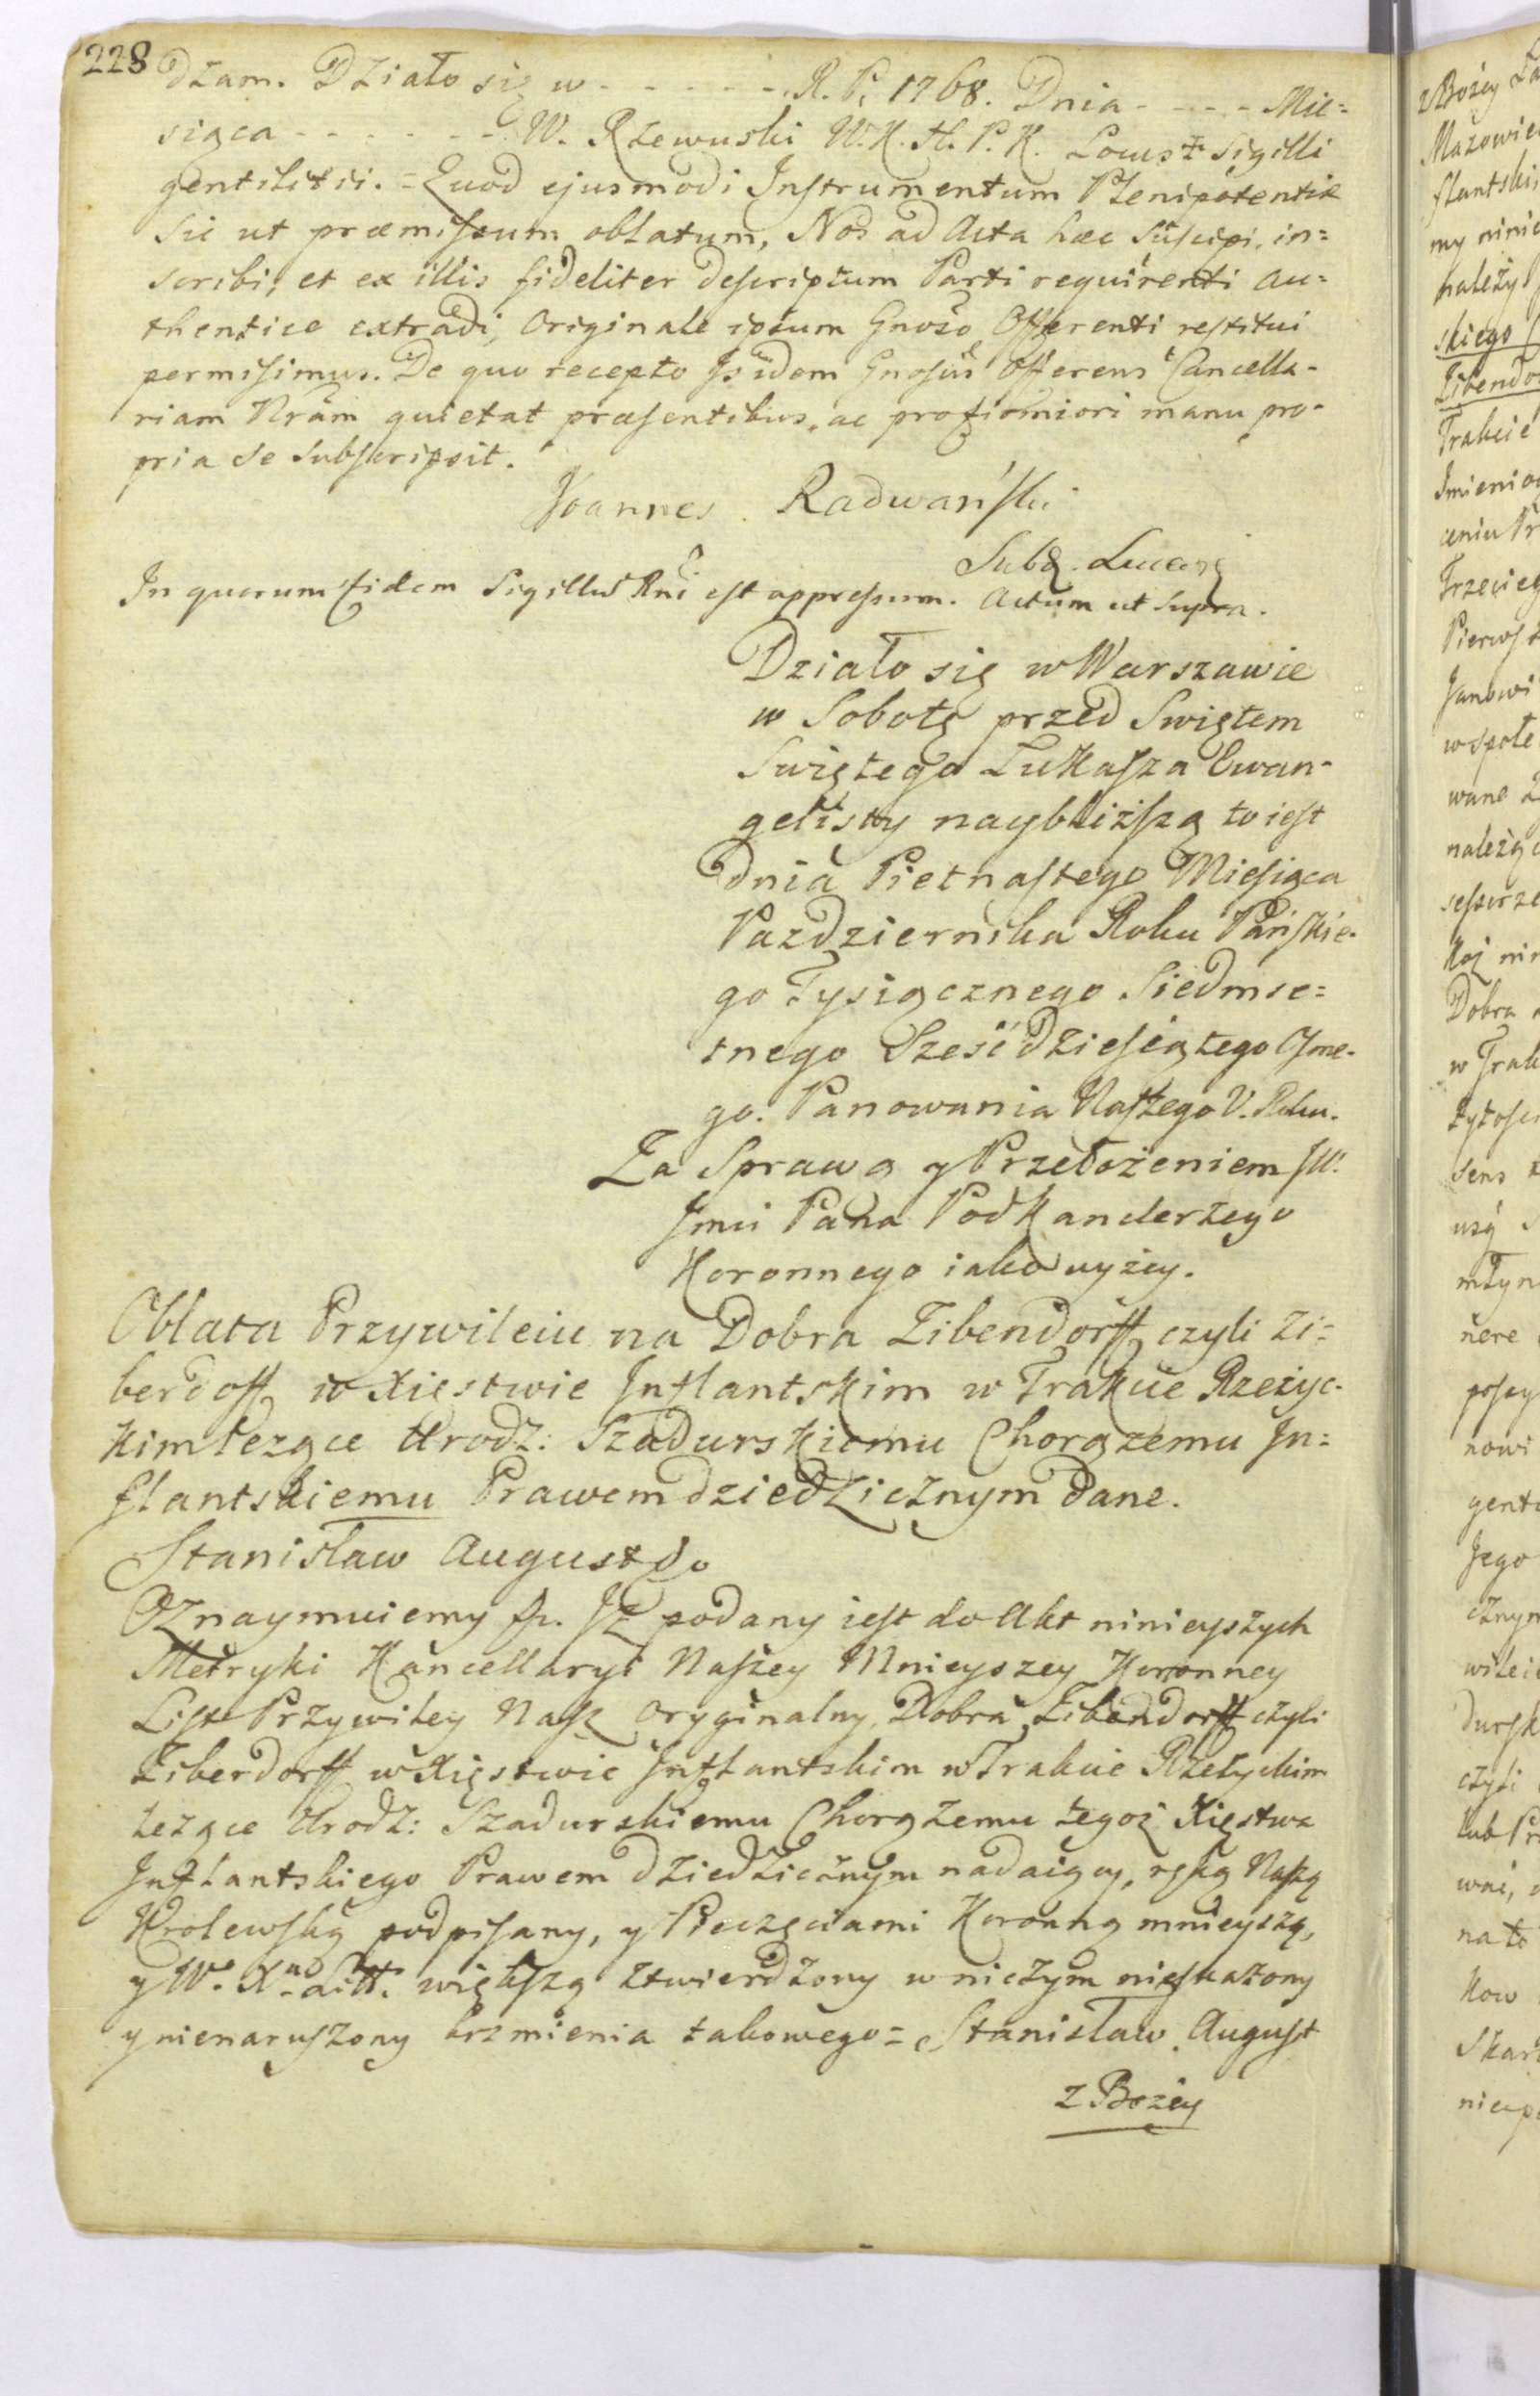 228
dzam. Działo się w - - - - - R. P. 1768. Dnia - - - - Mie=
siąca - - - - - - W. Rzewuski W. K. H. P. K. Locus Sigilli
gentilitii. = Quod ejusmodi Instrumentum Plenipotentiæ
sic ut præmissum oblatum, Nos ad Acta hæc suscipi, in=
scribi, et ex illis fideliter descriptum Parti requirenti au=
thentice extradi, Originale ipsum Gnoso Offerenti restitui
permisimus. De quo recepto Isidem Gnosus Offerens Cancella-
riam Nram quietat præsentibus, ac pro firmiori manu pro-
pria se subscripsit.
Joannes Radwański
Subd.
In quorum fidem Sigillum Rni est appressum. Actum ut supra.
Działo się w Warszawie
w Sobotę przed Swiętem
Swiętego Łukasza Ewan-
gelisty naybliższą to iest
Dnia Pietnastego Miesiąca
Pazdziernika Roku Pańskie-
go Tysiącznego Siedmse=
tnego Sześćdziesiątego Osme-
go. Panowania Naszego V. Roku.
Za Sprawą y Przełożeniem JW.
Jmci Pana Podkanclerzego
Koronnego iako wyżey.
Oblata Przywileiu na Dobra Zibendorff, czyli Zi=
berdoff, w Xięstwie Inflantskim w Trakcie Rzeżyc-
kim leżące Urodz: Szadurskiemu Chorążemu In=
flantskiemu Prawem dziedzicznym dane.
Stanisław August &c
Oznaymuiemy &c. Iż podany iest do Akt ninieyszych
Metryki Kancellaryi Naszey Mnieyszey Koronney
List Przywiley Nasz oryginalny, Dobra Zibendorff czyli
Ziberdorff w Xięstwie Inflantskim w Trakcie Rzeżyckim
leżące Urodz: Szadurskiemu Chorążemu tegoż Xięstwa
Inflantskiego Prawem dziedzicznym nadaiący, ręką Naszą
Krolewską podpisany, y Pieczęciami Koronną mnieyszą,
y W. Xa Litt. większą ztwierdzony w niczym nieskażony
y nienaruszony brzmienia takowego = Stanisław August
z Bożey